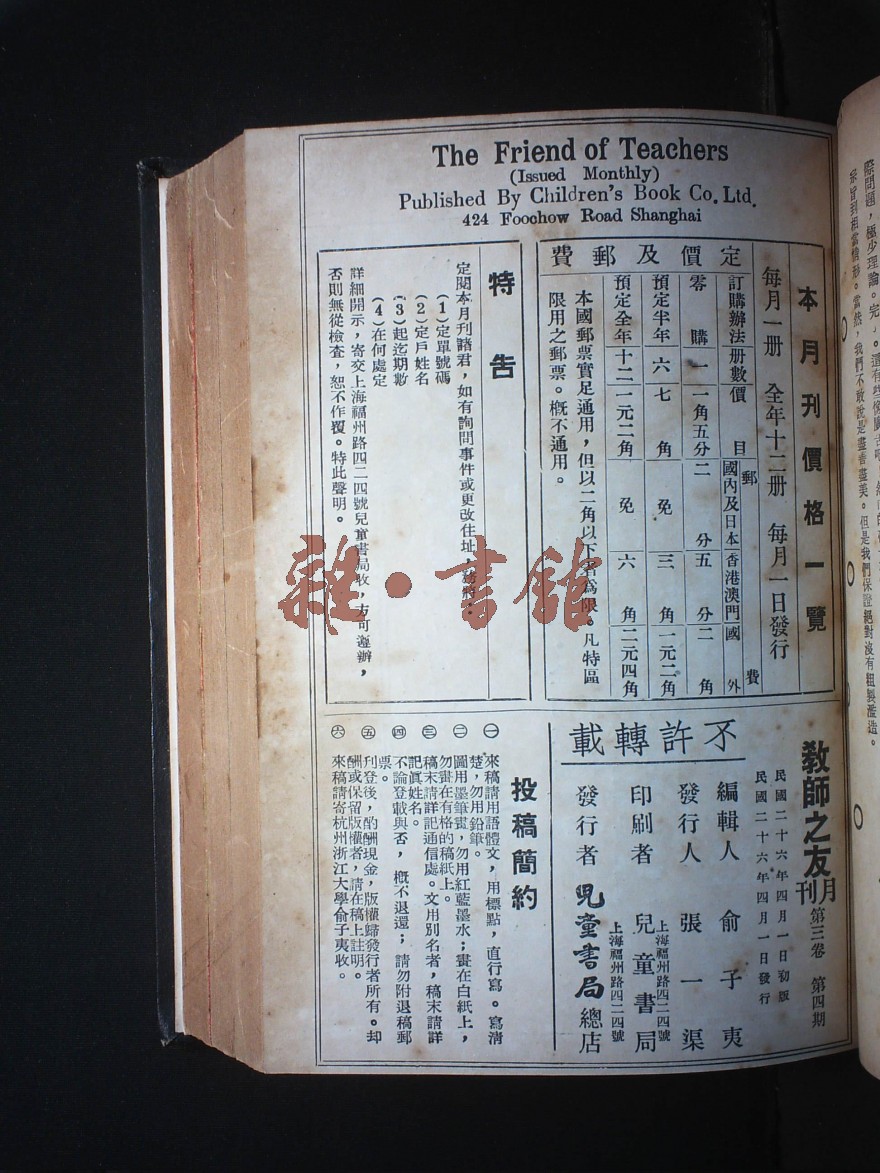 The Friend of Teachers
(Issued Monthly)
Published By Children's Book Co. Ltd.
424 Foochow Road Shanghai
本月刊價格一覽
每月一册 全年十二册 每月一日發行
定價及郵費
訂購辦法 册數 價目 郵費 國內及日本 香港澳門 國外
零購 一 一角五分 二分 五分 二角
預定半年 六 七角 免 三角 一元二角
預定全年 十二 一元二角 免 六角 二元四角
本國郵票實足通用,但以二角以下者爲限。凡特區
限用之郵票。概不通用。
特告
定閱本月刊諸君,如有詢問事件或更改住址,務將:
(1)定單號碼
(2)定戶姓名
(3)起迄期數
(4)在何處定
詳細開示,寄交上海福州路四二四號兒童書局收,方可遵辦,
否則無從檢查,恕不作覆。特此聲明。
教師之友月刊 第三卷 第四期
民國二十六年四月一日初版
民國二十六年四月一日發行
不許轉載
編輯人 俞子夷
發行人 張一渠
上海福州路四二四號
印刷者 兒童書局
上海福州路四二四號
發行者 兒童書局總店
投稿簡約
㊀ 來稿請用語體文,用標點,直行寫。寫清
楚,勿用鉛筆。
㊁ 圖用墨筆畫,勿用紅藍墨水;畫在白紙上,
勿畫在有格的稿紙上。
㊂ 稿末請詳記通信處。文用別名者,稿末請詳
記眞姓名。
㊃ 不論登載與否,概不退還;請勿附退稿郵
票。
㊄ 刊登後,酌酬現金,版權歸發行者所有。却
酬或保留版權者,請在稿上註明。
㊅ 來稿請寄杭州浙江大學俞子夷收。
雜·書館
際問題,極少理論。完
當然,我們不敢說是盡善盡美。但是我們保證絕對沒有粗製濫造。